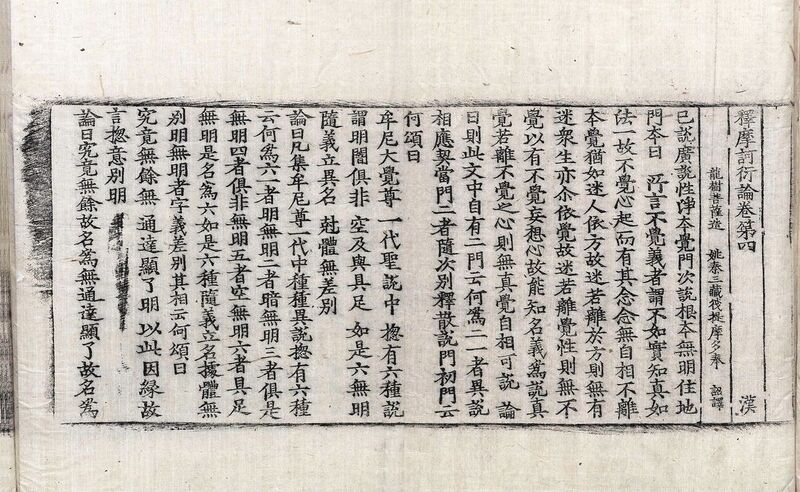 釋摩訶衍論卷第四 漢
龍樹菩薩造 姚秦三藏筏提摩多奉 詔譯
已說廣說性淨本覺門次說根本無明住地
門本曰 所言不覺義者謂不如實知真如
法一故不覺心起而有其念念無自相不離
本覺猶如迷人依方故迷若離於方則無有
迷衆生亦尒依覺故迷若離覺性則無不
覺以有不覺妄想心故能知名義爲說真
覺若離不覺之心則無真覺自相可說 論
曰則此文中自有二門云何爲二一者異說
相應契當門二者隨次別釋散說門初門云
何頌曰
牟尼大覺尊 一代聖說中 揔有六種說
謂明闇俱非 空及與具足 如是六無明
隨義立異名 尅體無差別
論曰凡集牟尼尊一代中種種異說揔有六種
云何爲六一者明無明二者暗無明三者俱是
無明四者俱非無明五者空無明六者具足
無明是名爲六如是六種隨義立名據體無
別明無明者字義差別其相云何頌曰
究竟無餘無 通達顯了明 以此因緣故
言揔意別明
論曰究竟無餘故名爲無通達顯了故名爲